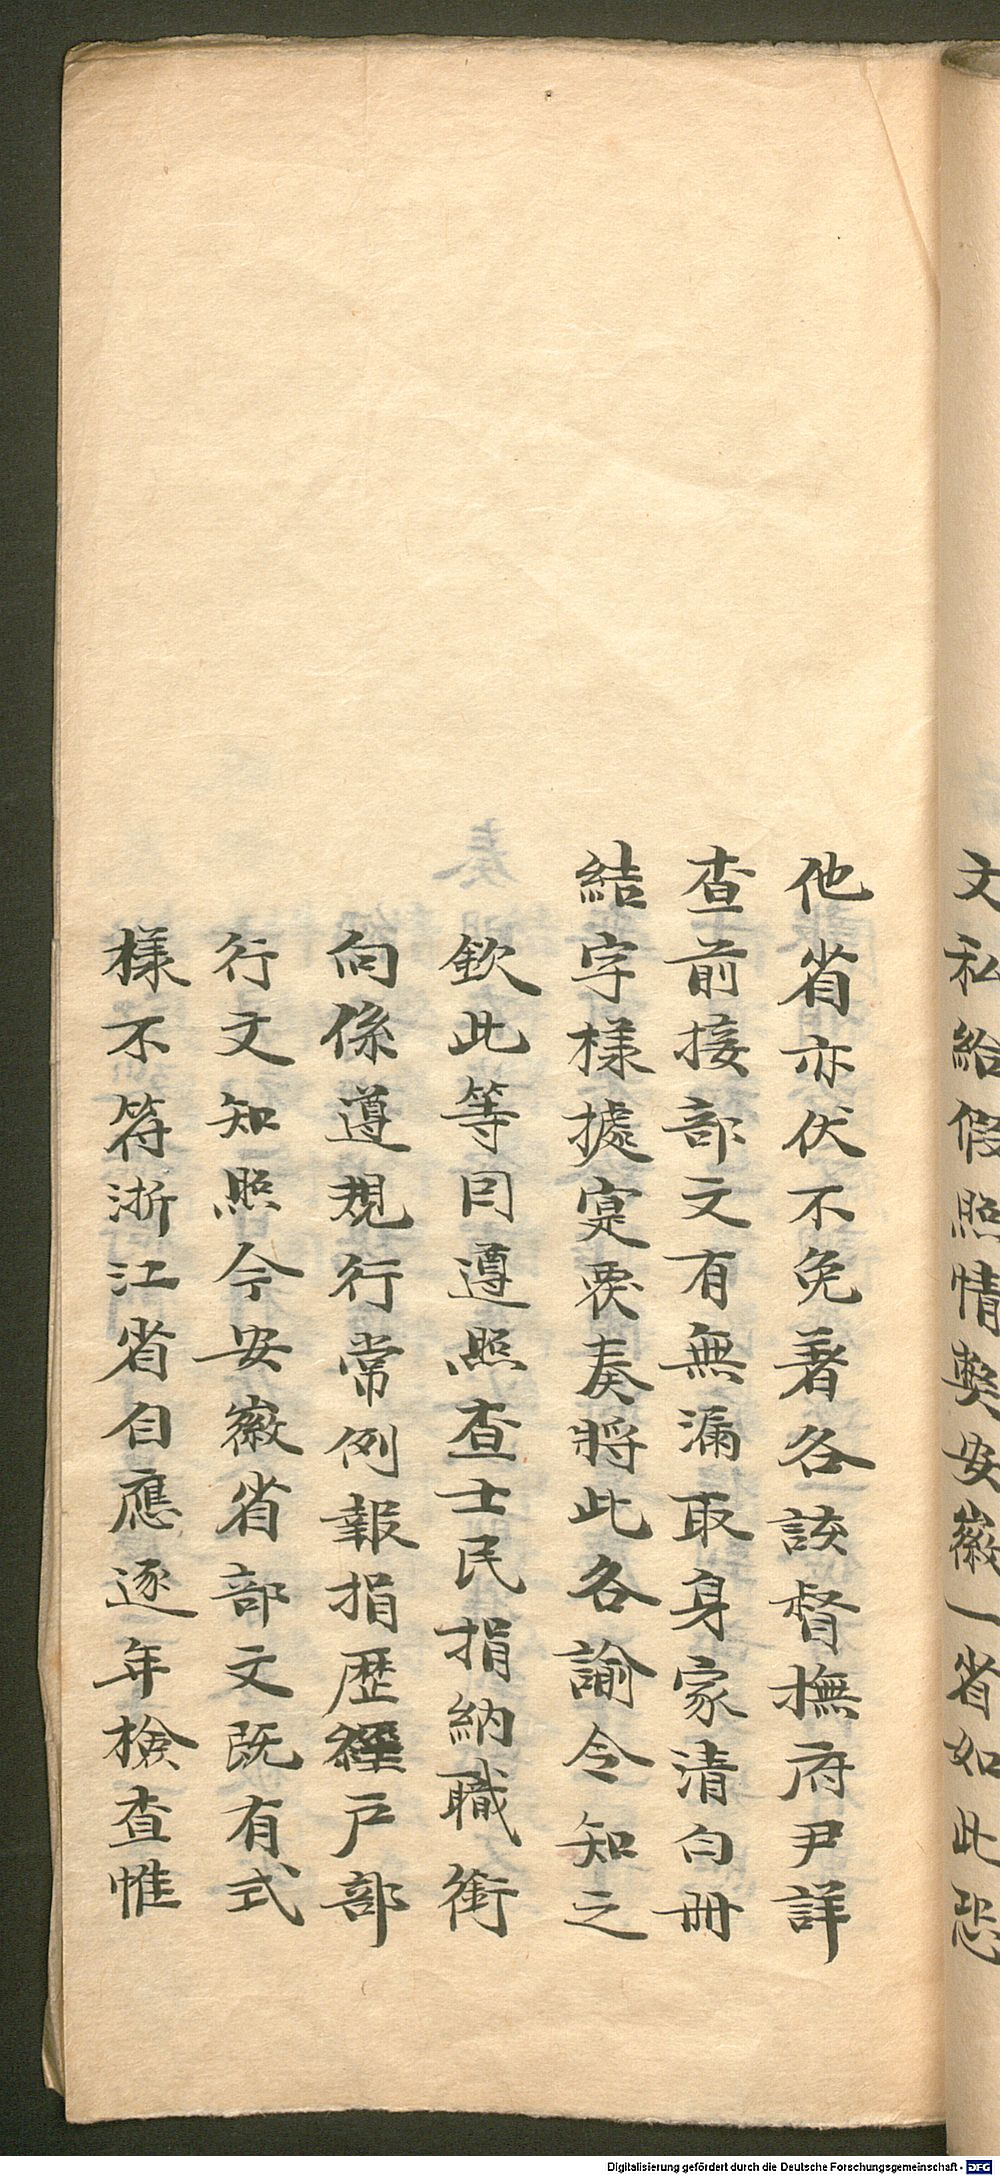 文私給假照情獘安徽一省如此恐
他省亦伏不免著各該督撫府尹詳
查前接部文有無漏取身家清白冊
結字樣據寔覆奏將此各諭令知之
欽此等因遵照查士民捐納職銜
向係遵規行常例報捐歷經戶部
行文知照今安徽省部文既有式
樣不符浙江省自應逐年檢查惟
奏
Digitalisierung gefördert durch die Deutsche Forschungsgemeinschaft - DFG